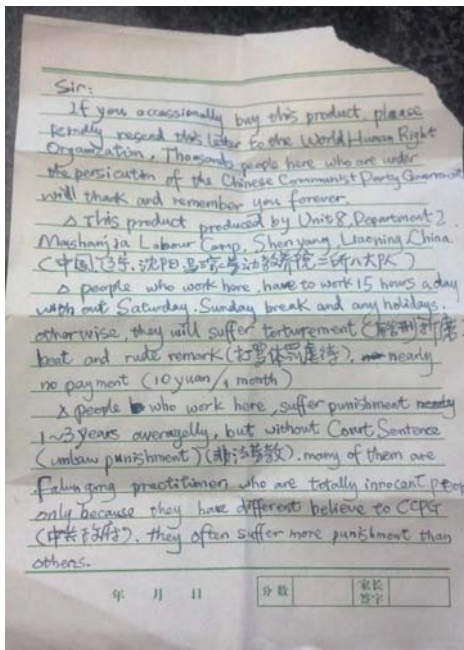 Sir:
If you occassionally buy this product, please
kindly resend this letter to the World Human Right
Organization. Thousands people here who are under
the persicution of the Chinese Communist Party Government
will thank and remember you forever.
△ This product produced by Unit 8, Department 2,
Mashanjia Labour Camp, Shen yang, Liaoning, China.
(中国,辽宁,沈阳,马三家劳动教养院二所八大队)
△ people who work here, have to work 15 hours a day
with out Saturday, Sunday break and any holidays,
otherwise, they will suffer torturement (折磨),
beat and rude remark (打骂体罚虐待), nearly
no payment (10 yuan/1 month)
△ people who work here, suffer punishment
1~3 years averagelly, but without Court Sentence
(unlaw punishment) (非法劳教). many of them are
Falungong practitioner, who are totally innocent people
only because they have different believe to CCPG
(中共政府). they often suffer more punishment than
others.
年 月 日 分数 家长签字